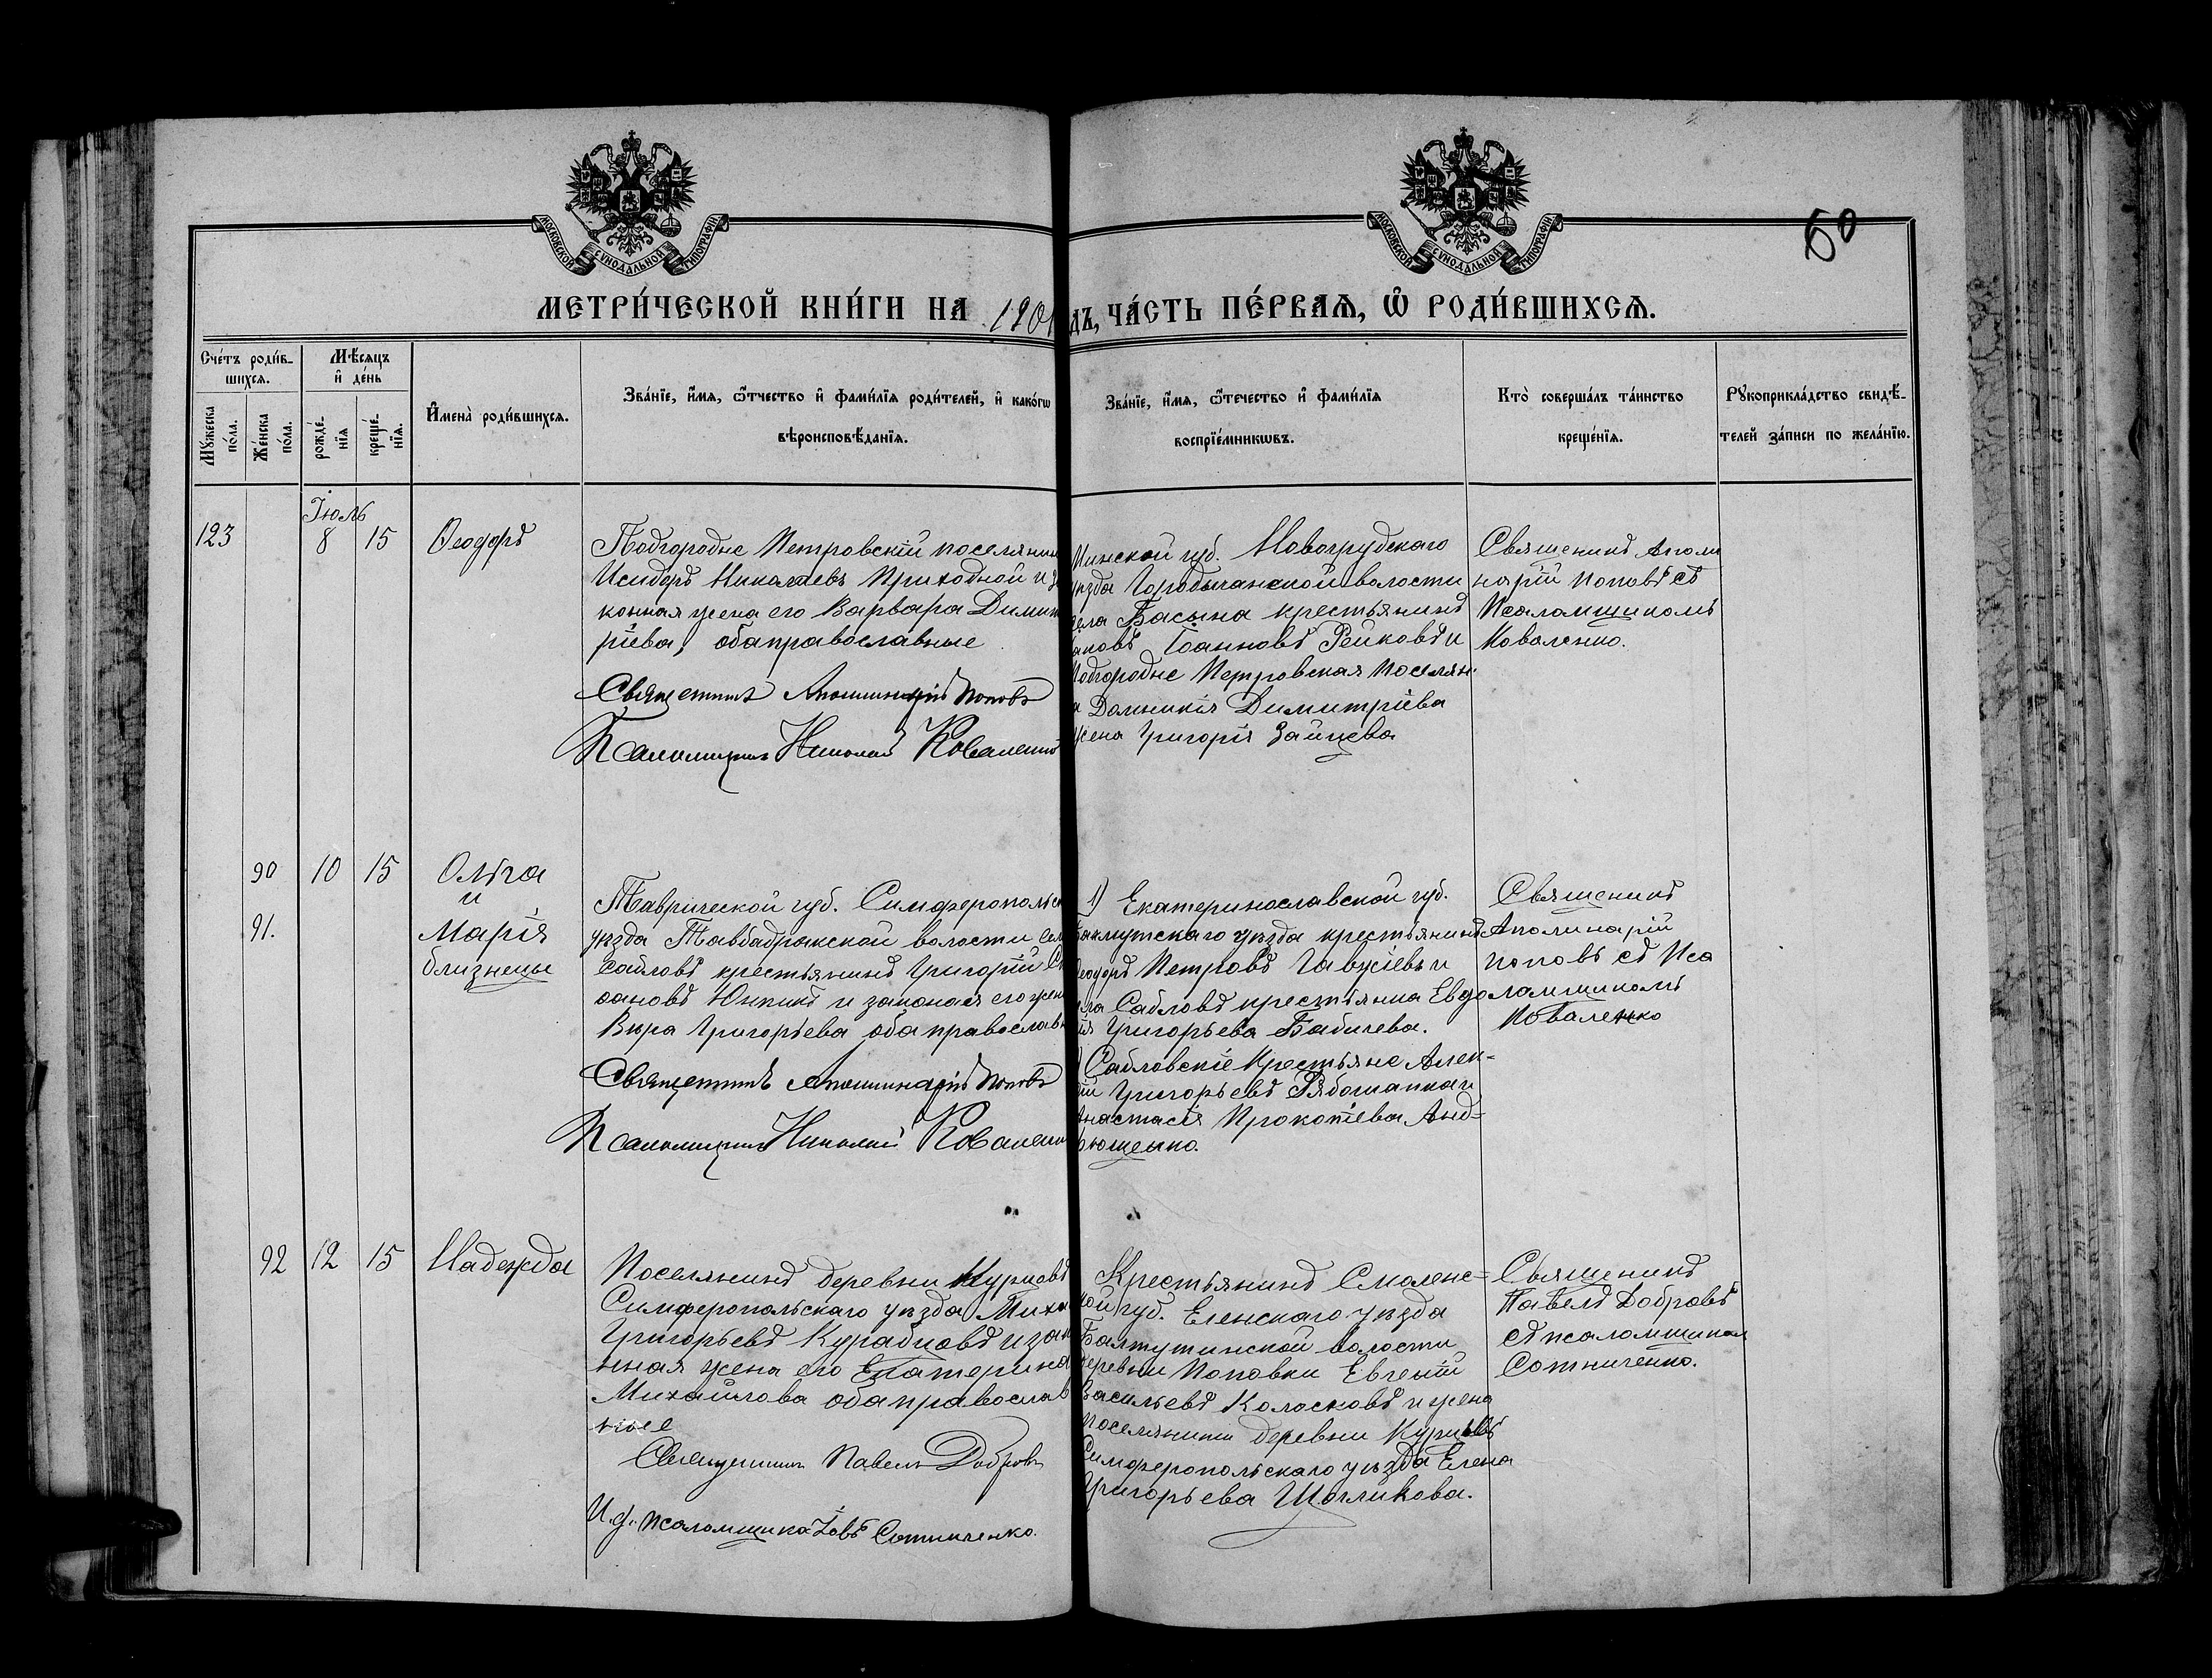 МОСКОВСКОЙ СѴНОДАЛЬНОЙ ТИПОГРАФІИ
МОСКОВСКОЙ СѴНОДАЛЬНОЙ ТИПОГРАФІИ
50
МЕТРИ́ЧЕСКОЙ КНИ́ГИ НА 190
дъ, ЧА́СТЬ ПЕ́РВАѦ, Ѡ҆ РОДИ́ВШИХСѦ.
Сче́тъ роди́в-
шихсѧ.
Мꙋжеска по́ла.
Же́нска по́ла.
Мѣ́сѧцъ
и҆ де́нь
рожде́-
нїѧ
креще́-
нїѧ.
И҆мена̀ роди́вшихсѧ.
Зва́нїе, и҆́мѧ, ѻ҆́тчество и҆ фами́лїѧ роди́телей, и҆ како́гѡ
вѣроисповѣ́данїѧ.
Зва́нїе, и҆́мѧ, ѻ҆́течество и҆ фами́лїѧ
воспрїе́мникѡвъ.
Кто̀ соверша́лъ та́инство
креще́нїѧ.
Рꙋкоприкла́дство свидѣ́-
телей за́писи по жела́нїю.
Іюль
123 8 15 Ѳеодоръ
Подгородне Петровскій поселянин
Исидоръ Николаевъ Приходной и за
конная жена его Варвара Димит
ріева, оба православные
Священникъ Аполлинарій Поповъ
Псаломщикъ Николай Коваленко
Минской губ. Новогрудскаго
уѣзда волости
села Басына крестьянинъ
Іоанновъ Рейковъ и
Подгородне Петровская Поселян
а Домникія Димитріева
жена Григорія Зайцева
Священикъ Аполи
нарій Поповъ съ
Псаломщикомъ
Коваленко.
90 10 15 Ольга
и
91. Марія
близнецы
Таврической губ. Симферопольск
уѣзда волости сел
Сабловъ крестьянинъ Григорій Ст
фановъ и законная его жен
Вѣра Григорьева оба православн
Священникъ Аполлинарій Поповъ
Псаломщикъ Николай Коваленко
1) Екатеринославской губ.
Бахмутскаго уѣзда крестьянинъ
Ѳеодоръ Петровъ и
села Сабловъ крестьянка Евдо
ія Григорьева Бабичева.
Сабловскіе Крестьяне Алек-
ій Григорьевъ Рябошапка и
Анастасія Прокопіева Анд-
рющенко.
Священикъ
Аполинарій
Поповъ съ Пса
ломщикомъ
Коваленко
92 12 15 Надежда
Поселянинъ деревни Курцовъ
Симферопольскаго уѣзда Миха
Григорьевъ Курабцовъ и зак
нная жена его Екатерина
Михайлова оба православ
ные
Священникъ Павелъ Добровъ
И. д. псаломщика Іовъ Сотниченко.
Крестьянинъ Смоленс-
кой губ. Еленскаго уѣзда
Балтутинской волости
деревни Поповки Евгеній
Васильевъ Колосковъ и жена
поселянина деревни Курцовъ
Симферопольскаго уѣзда Елена
Григорьева Щегликова.
Священикъ
Павелъ Добровъ
съ псаломщиком
Сотниченко.